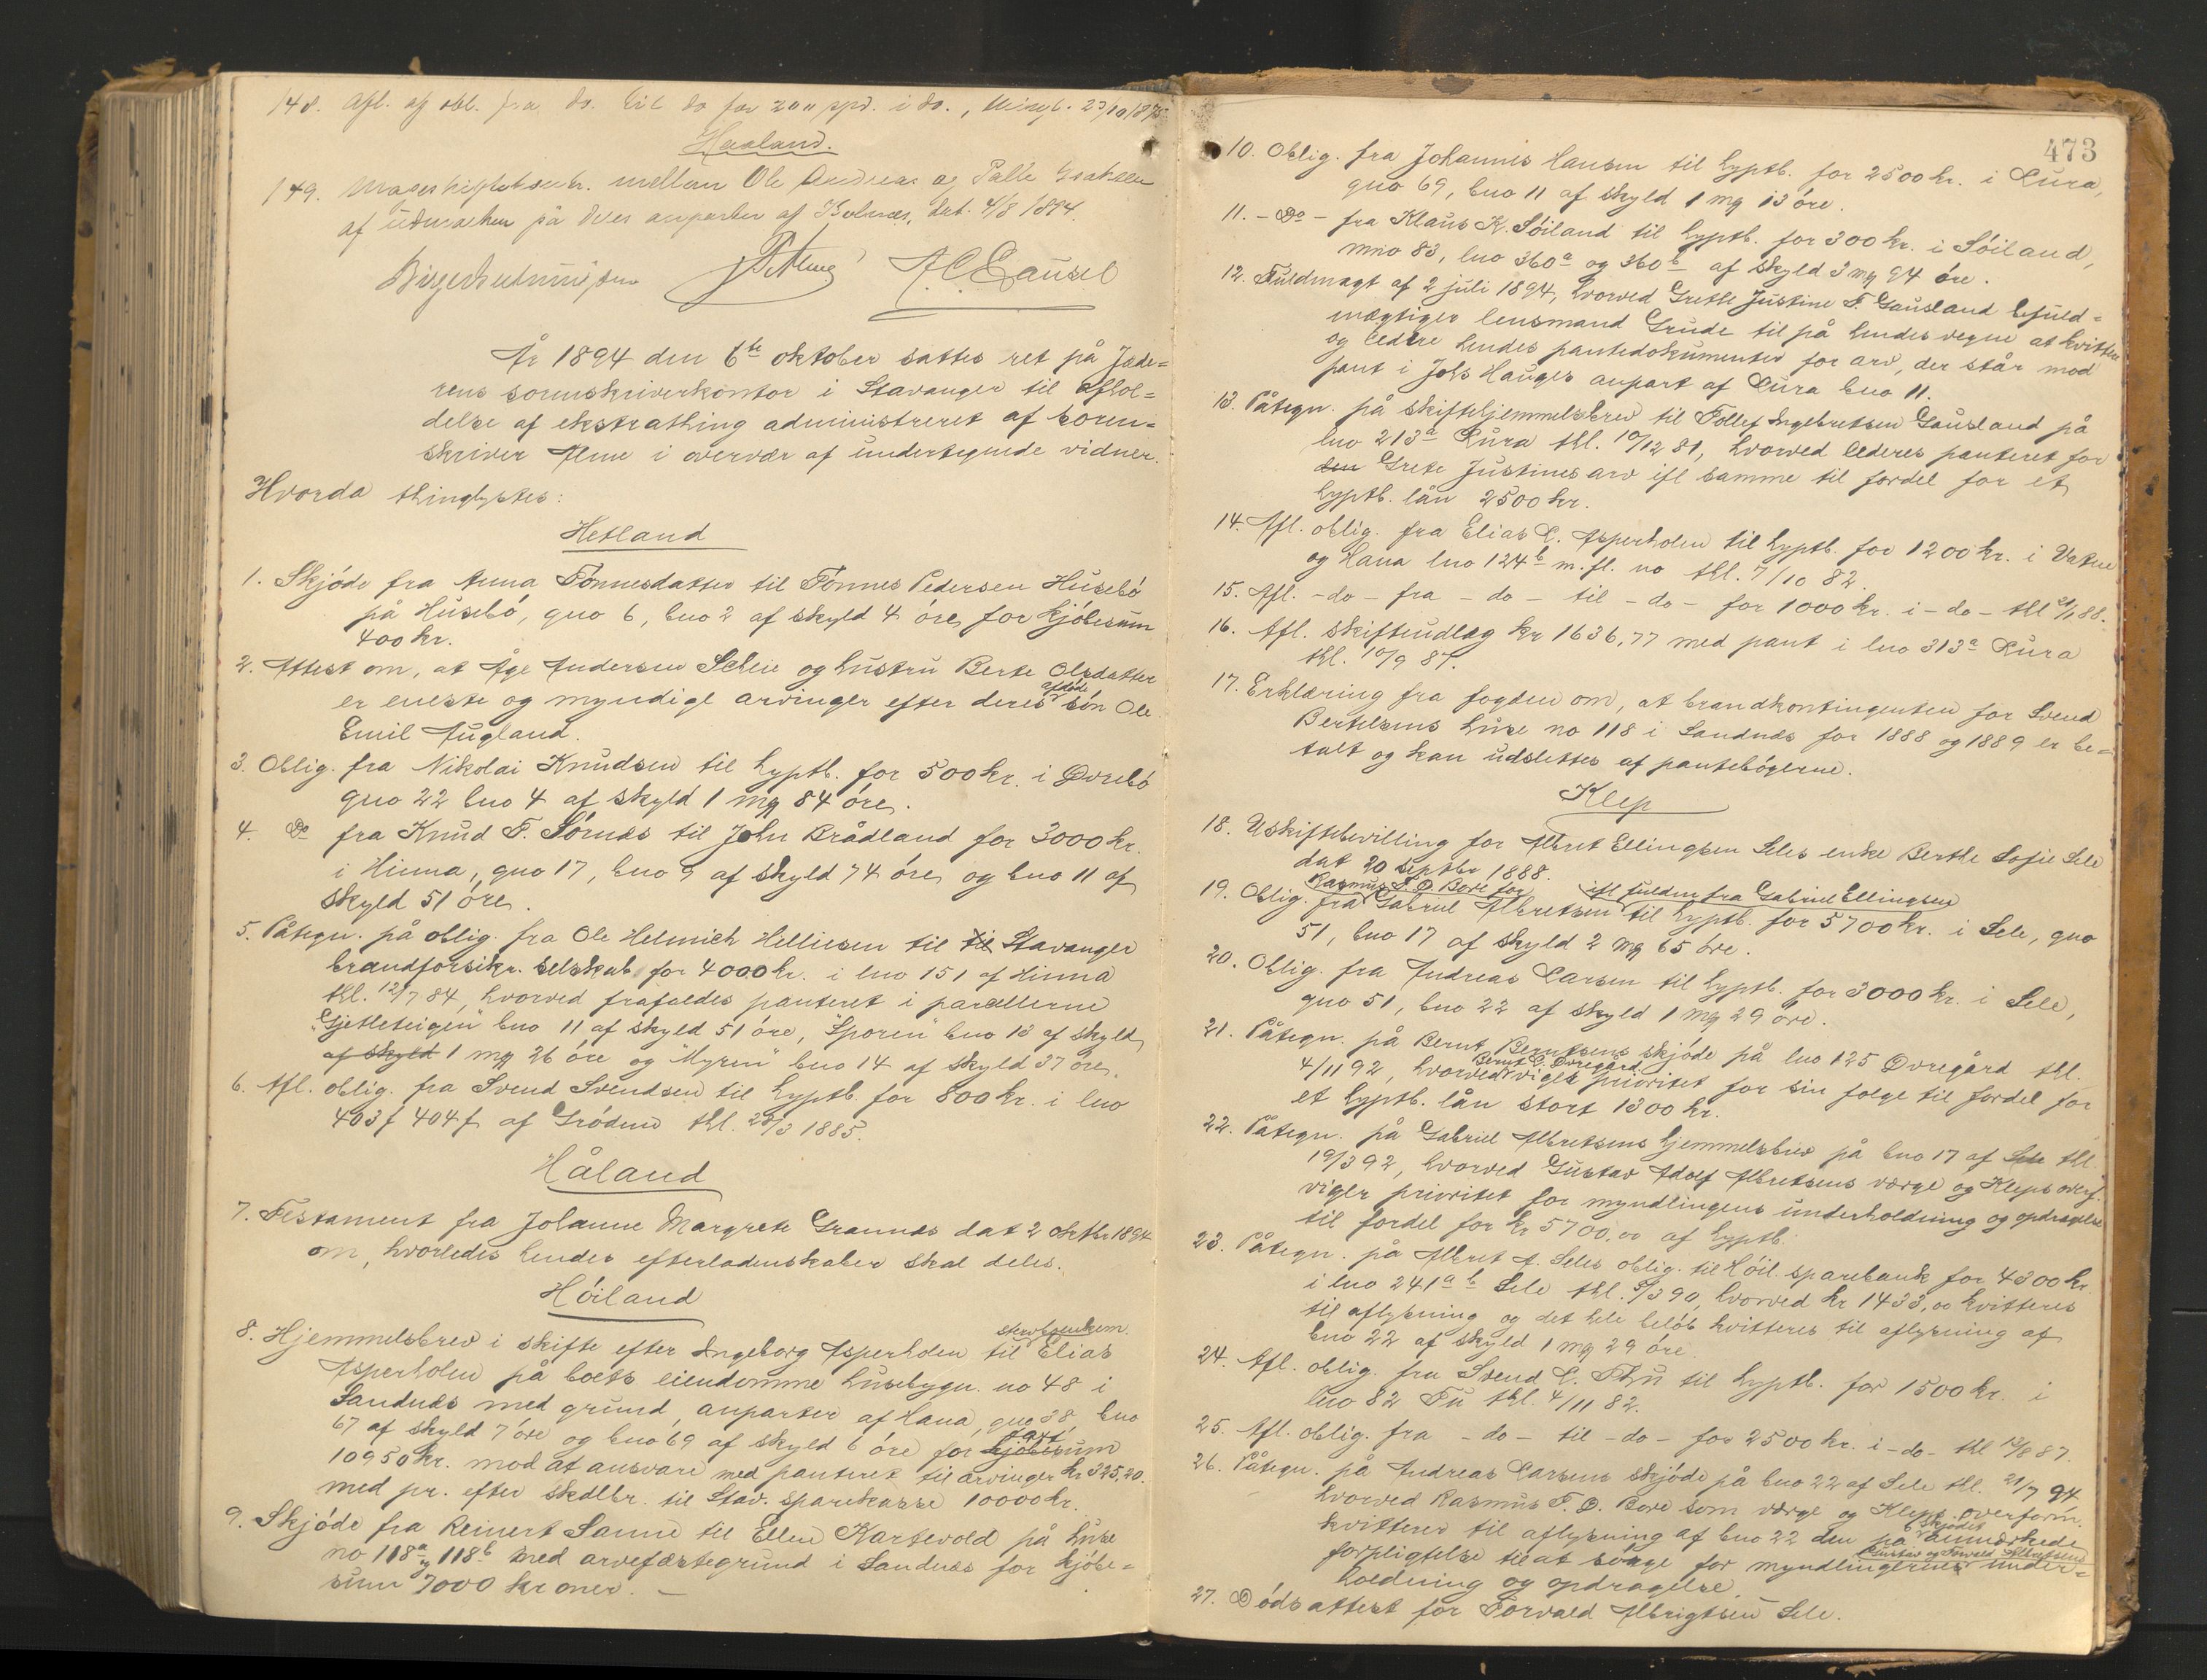 148. Afl. af obl. fra do. til do for 200 spd. i do., thingl. 23/10 1875.
Haaland.
149. Mageskiftebrev mellem Ole Andreas og Palle Isaksen
af udmarken på deres anparter af , dat. 4/8 1894.
År 1894 den 6te oktober sattes ret på Jæde-
rens sorenskriverkontor i Stavanger til afhol-
delse af ekstrathing administreret af soren-
skriver i overvær af undertegnede vidner.
Hvorda thinglystes:
Hetland
1. Skjöde fra Anna Tönnesdatter til Tönnes Pedersen Husebö
på Husebö, gno 6, bno 2 af skyld 4 öre, for kjöbesum
400 kr.
2. Attest om, at Åge Andersen Scheie og hustru Berte Olsdatter
er eneste og myndige arvinger efter deres afdöde sön Ole
Emil Augland.
3. Oblig. fra Nikolai Knudsen til hyptb. for 500 kr. i Övrebö
gno 22 bno 4 af skyld 1 mg 84 öre.
4. Do fra Knud T. Sörnes til John Brådland for 3000 kr.
i Hinna, gno 17, bno 9 af skyld 74 öre, og bno 11 af
skyld 51 öre.
5. Påtegn. på oblig. fra Ole Helmich Helliesen til til Stavanger
brandforsikr. selskab for 4000 kr. i lno 151 af Hinna
thl. 12/7 84, hvorved frafaldes panteret i parcellerne
"Gjetleteigen" bno 11 af skyld 51 öre, "Sporen" bno 13 af skyld
af skyld 1 mg 26 öre og "Myren" bno 14 af skyld 37 öre.
6. Afl. oblig. fra Svend Svendsen til hyptb. for 800 kr. i lno
403f 404f af Gröden thl. 28/3 1885.
Håland
7. Testament fra Johanne Margrete Grannes dat 2 oktbr 1894
om, hvorledes hendes efterladenskaber skal deles.
Höiland
8. Hjemmelsbrev i skifte efter Ingeborg Asperholen til stervbsenkem. Elias
Asperholen på boets eiendomme husebygn. no 48 i
Sandnes med grund, anparter af Hana, gno 38, bno
67 af skyld 7 öre og bno 69 af skyld 6 öre for kjöbesum taxt
10950 kr. mod at ansvare med panteret til arvinger kr 325,20.
med pr. efter skdlbr. til Stav. sparekasse 10000 kr.
9. Skjöde fra Reinert Sanne til Ellen Kartevold på huse
no 118a og 118b med arvefæstegrund i Sandnes for kjöbe-
sum 7000 kroner. –
473
10. Oblig. fra Johannis Hansen til hyptb. for 2500 kr. i Lura,
gno 69, bno 11 af skyld 1 mg 13 öre.
11. – Do – fra Klaus K. Söiland til hyptb. for 300 kr. i Söiland,
mno 83, lno 360a og 360b af skyld 3 mg 94 öre.
12. Fuldmagt af 2 juli 1894, hvorved Grethe Justine T. Gausland befuld-
mægtiger lensmand Grude til på hendes vegne at kvittere
og cedere hendes pantedokumenter for arv, der står mod
pant i Johs Hauges anpart af Lura bno 11.
13. Påtegn. på skiftehjemmelsbrev til Tollef Ingebretsen Gausland på
lno 213a Lura thl. 10/12 81, hvorved cederes panteret for
den Grete Justines arv ifl samme til fordel for et
hyptb. lån 2500 kr.
14. Afl. oblig. fra Elias C. Asperholen til hyptb. for 1200 kr. i Vatne
og Hana lno 124b m. fl. no thl. 7/10 82.
15. Afl. – do – fra – do – til – do – for 1000 kr. i – do – thl 21/1 88.
16. Afl. skifteudlæg kr 1636,77 med pant i lno 313a Lura
thl. 10/9 87.
17. Erklæring fra fogden om, at brandkontingenten for Svend
Bertelsens huse no 118 i Sandnes for 1888 og 1889 er be-
talt og kan udslettes af pantebögerne.
Klep
18. Uskiftebevilling for Albret Ellingsen Seles enke Berthe Sofie Sele
dat 20 septbr 1888.
Rasmus T. O. Bore for ifl fuldm fra Gabriel Ellingsen
19. Oblig. fra Gabriel Albretsen til hyptb. for 5700 kr. i Sele, gno
51, bno 17 af skyld 2 mg 65 öre.
20. Oblig. fra Andreas Larsen til hyptb. for 3000 kr. i Sele,
gno 51, bno 22 af skyld 1 mg 29 öre.
21. Påtegn. på Bernt Berntsens skjöde på lno 125 Övregård thl.
4/11 92, hvorved Bernt C. Övregård viger prioritet for sin folge til fordel for
et hyptb. lån stort 1300 kr.
22. Påtegn. på Gabriel Albretsens hjemmelsbrev på bno 17 af Sele thl.
19/3 92, hvorved Gustav Adolf Albretsens værge og Kleps overf.
viger prioritet for myndlingens underholdning og opdragelse
til fordel for kr 5700,00 af hyptb.
23. Påtegn. på Albret A. Seles oblig. til Höil. sparebank for 4300 kr.
i lno 241a b Sele thl. 5/3 90, hvorved kr 1433,00 kvitteres
til aflysning og det hele belöb kvitteres til aflysning af
bno 22 af skyld 1 mg 29 öre.
24. Afl. oblig. fra Svend C. Thu til hyptb. for 1500 kr. i
lno 82 Tu thl. 4/11 82.
25. Afl. oblig. fra – do – til – do – for 2500 kr. i – do – thl 12/8 87.
26. Påtegn. på Andreas Larsens skjöde på bno 22 af Sele thl. 21/7 94.
hvorved Rasmus T. O. Bore som værge og Klepp overform.
kvitterer til aflysning af bno 22 den på skjödet anmærkede
forpligtelse til at sörge for myndlingernes Gustav og Torvald Albretsens under-
holdning og opdragelse.
27. Dödsattest for Torvald Albrigtsen Sele.